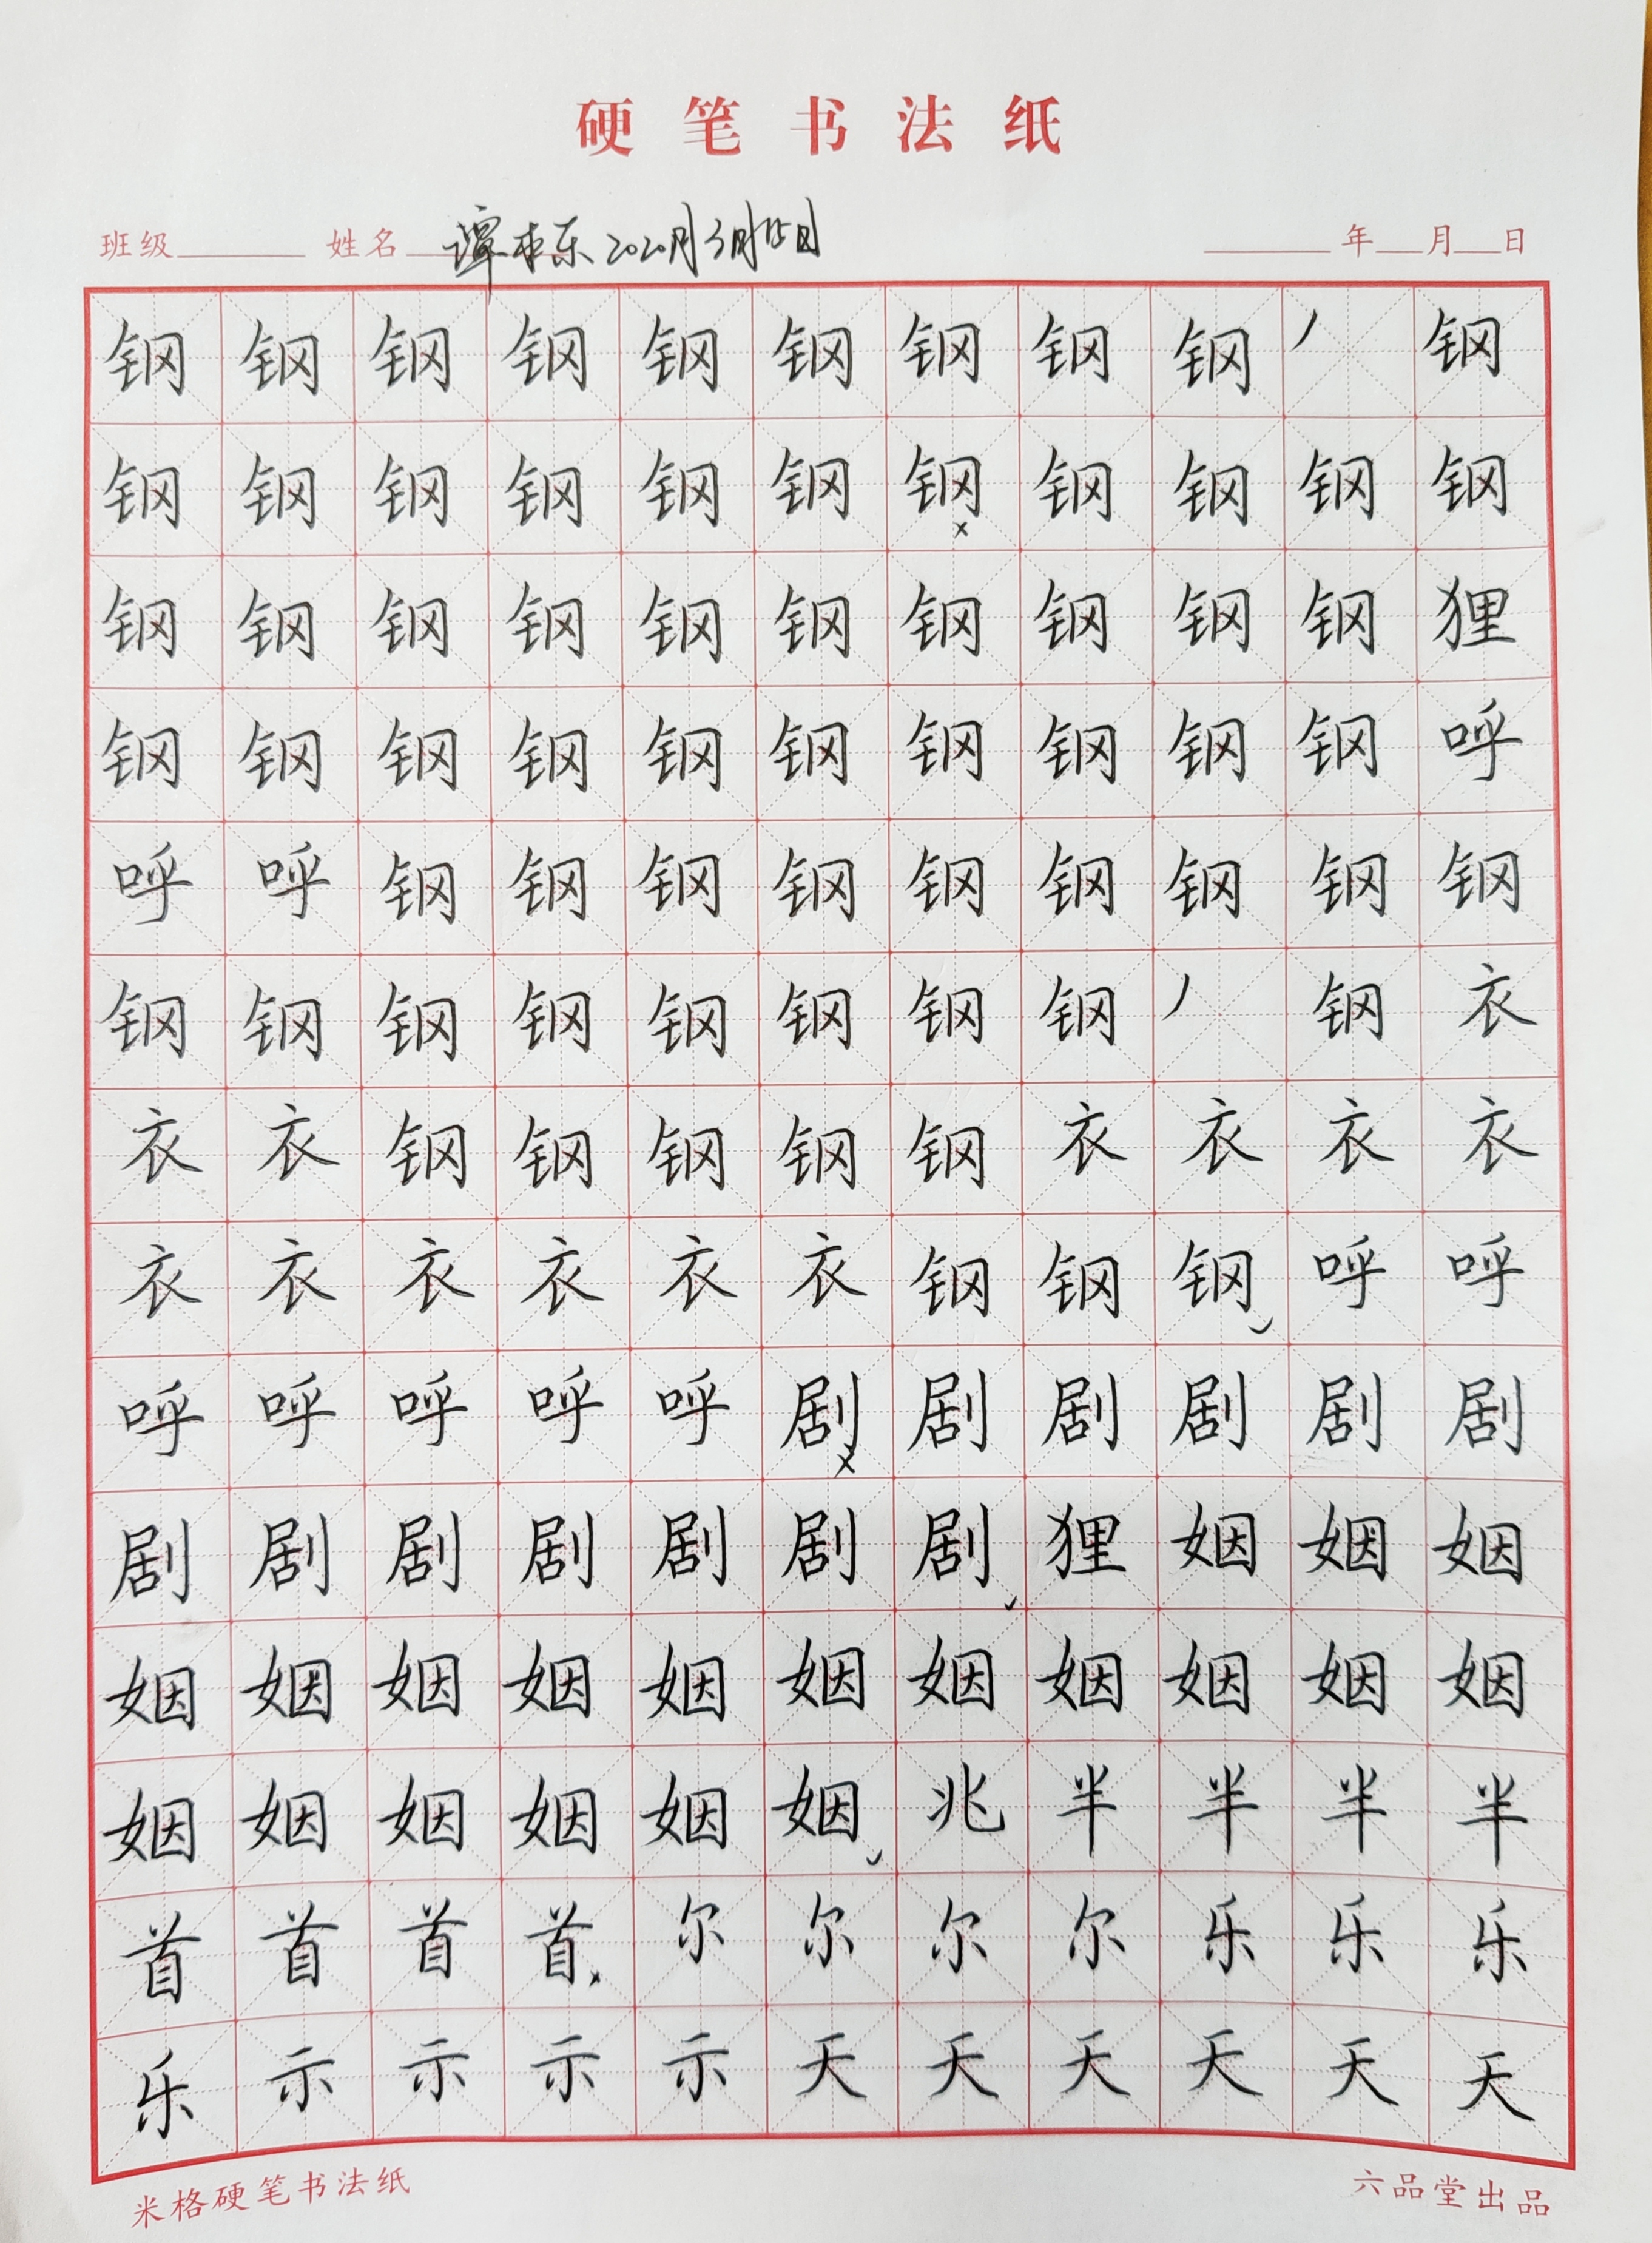 硬笔书法纸
班级 姓名 谭 东 2020 3月15日 年 月 日
钢钢钢钢钢钢钢钢钢丿钢
钢钢钢钢钢钢钢钢钢钢钢
钢钢钢钢钢钢钢钢钢钢狸
钢钢钢钢钢钢钢钢钢钢呼
呼呼钢钢钢钢钢钢钢钢钢
钢钢钢钢钢钢钢钢丿钢衣
衣衣钢钢钢钢钢衣衣衣衣
衣衣衣衣衣衣钢钢钢呼呼
呼呼呼呼呼剧剧剧剧剧剧
剧剧剧剧剧剧剧狸姻姻姻
姻姻姻姻姻姻姻姻姻姻姻
姻姻姻姻姻姻兆半半半半
首首首首尔尔尔尔乐乐乐
乐示示示示天天天天天天
米格硬笔书法纸 六品堂出品